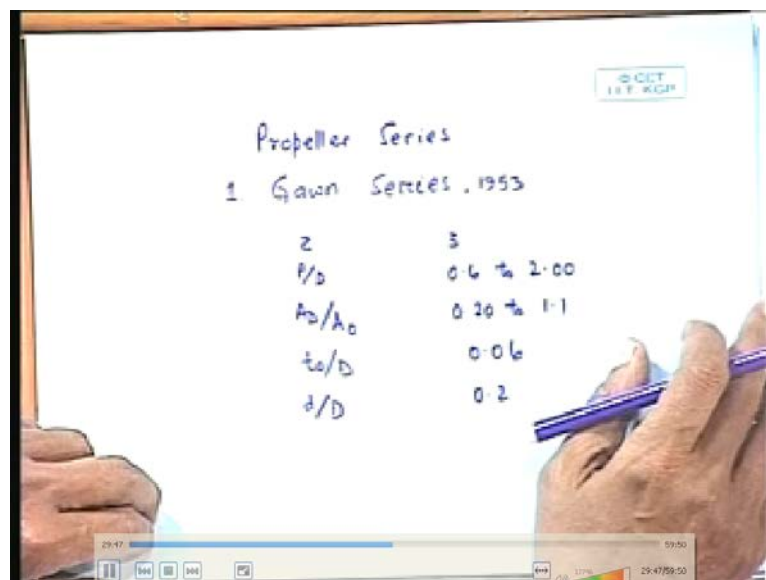 © CET
I.I.T. KGP
Propeller Series
1. Gawn Series, 1953
Z 3
P/D 0.6 to 2.00
AD/A0 0.20 to 1.1
t0/D 0.06
d/D 0.2
29:47 59:50
29:47/59:50